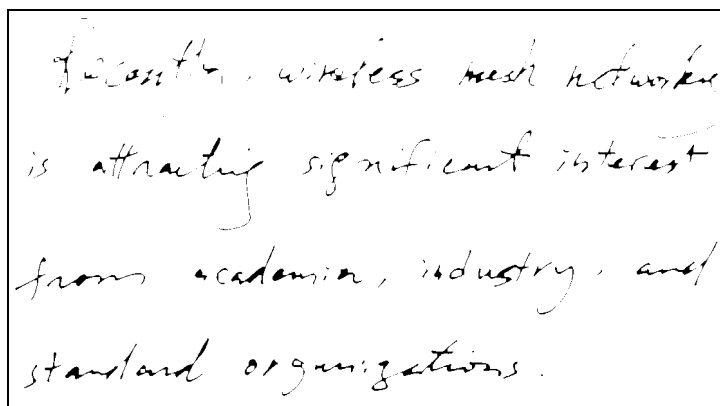 Recently, wireless mesh networking
is attracting significant interest
from academia, industry, and
standard organizations.